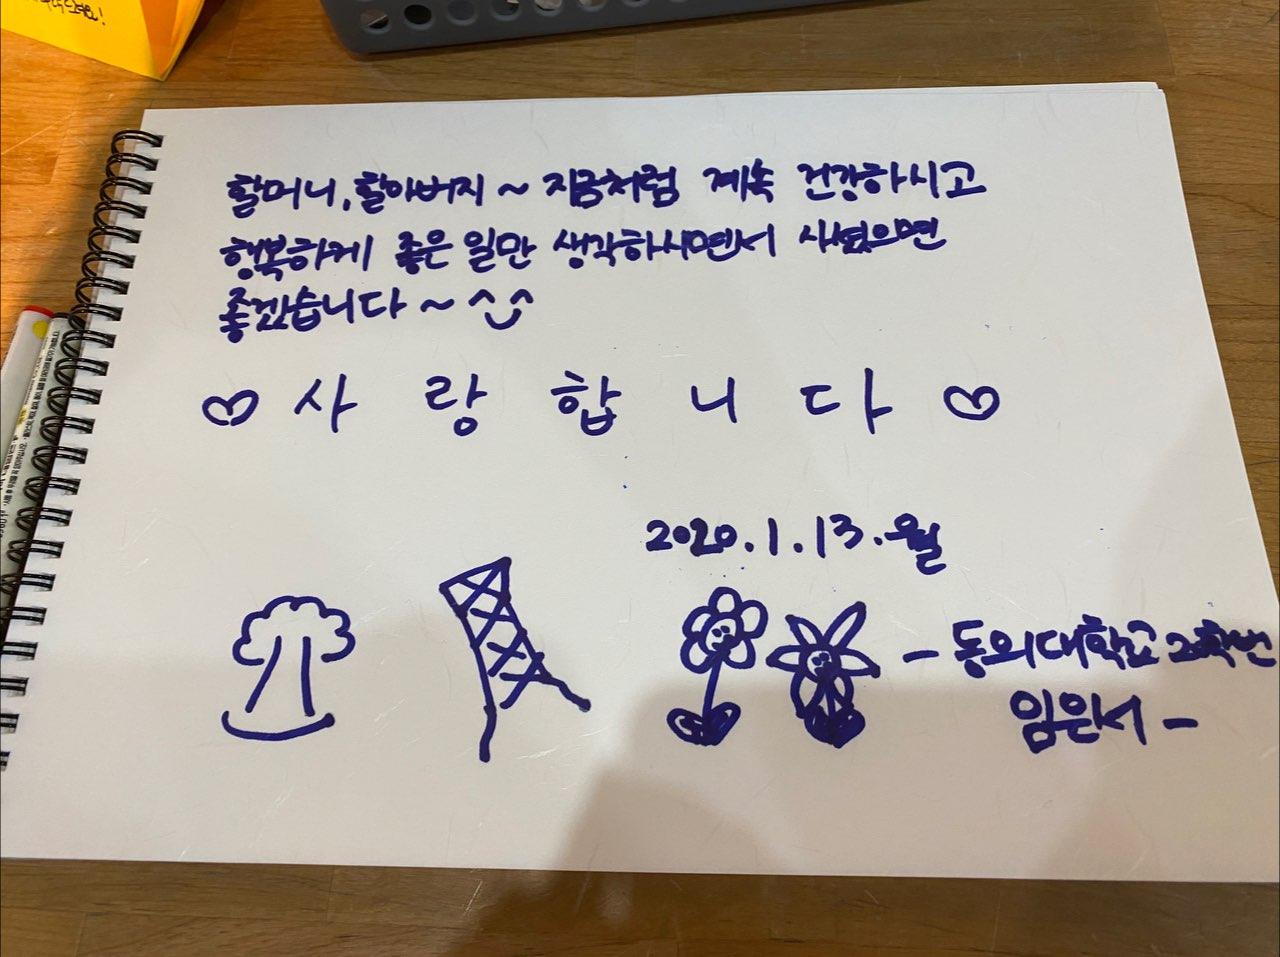 할머니, 할아버지 ~ 지금처럼 계속 건강하시고
행복하게 좋은 일만 생각하시면서 사셨으면
좋겠습니다 ~ ^^
♡ 사 랑 합 니 다 ♡
2020.1.13.월
- 동의대학교 2학년
임은서 -